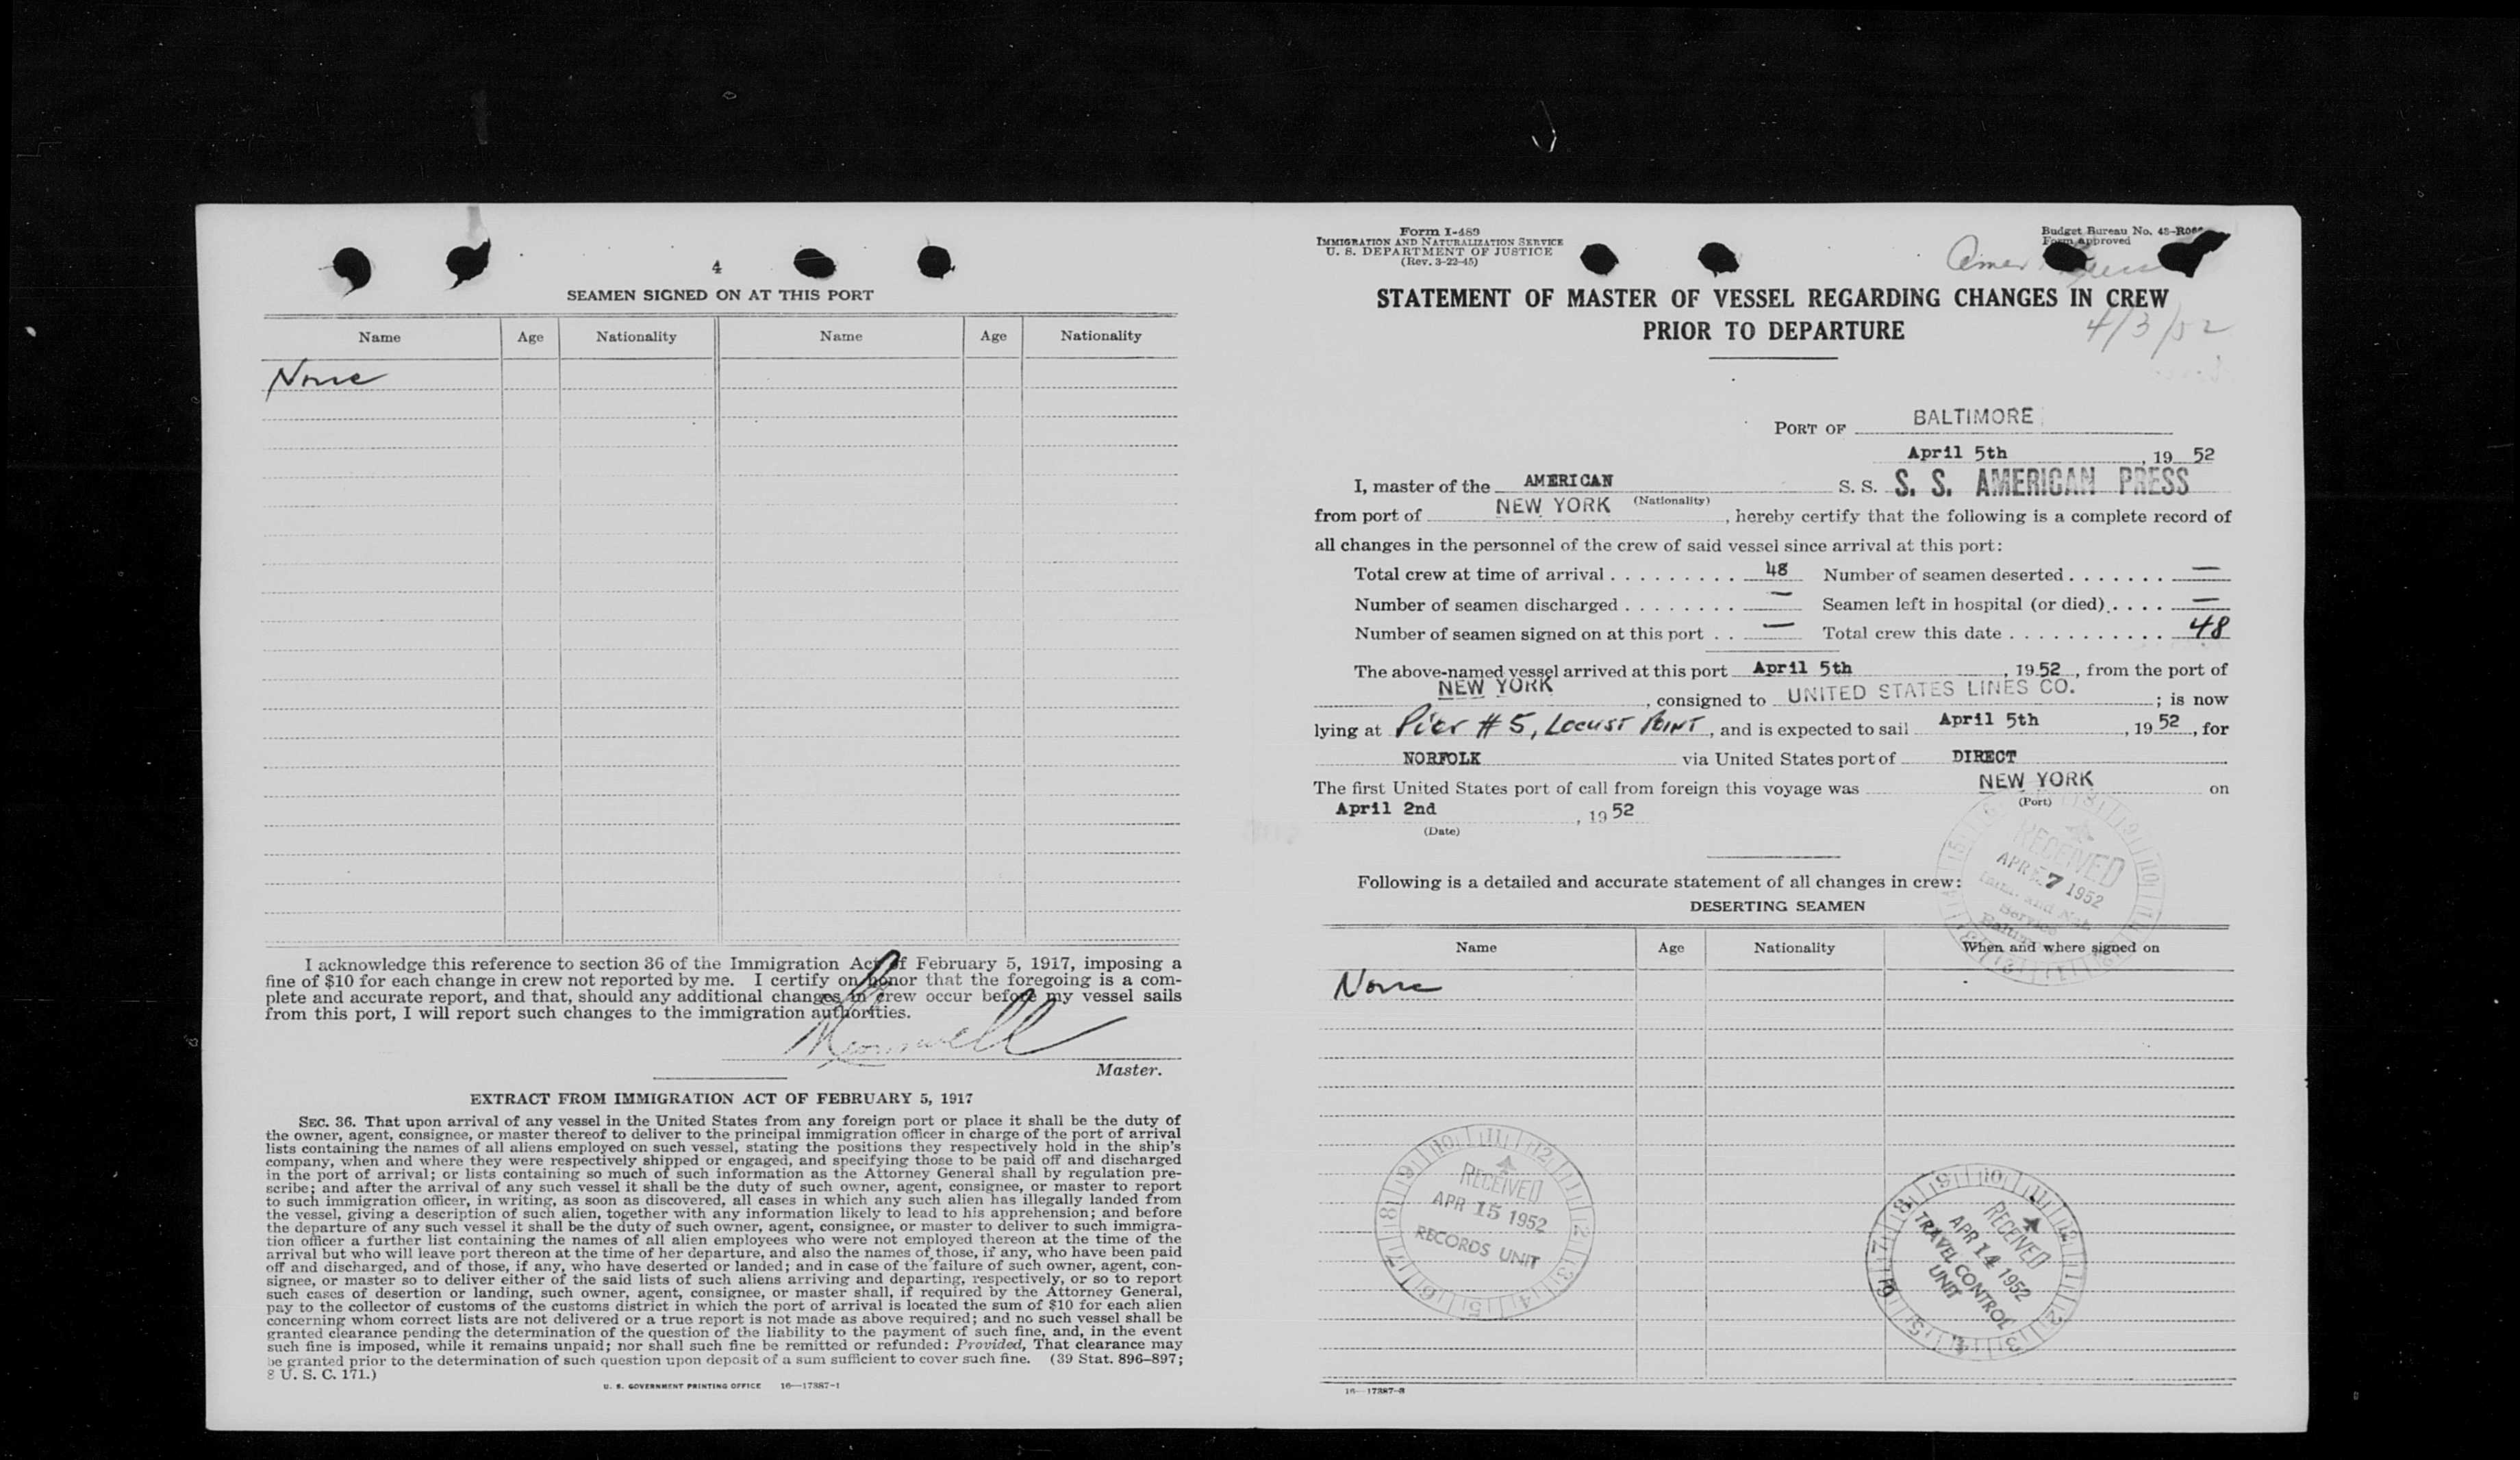 4
SEAMEN SIGNED ON AT THIS PORT
Name Age Nationality Name Age Nationality
None
I acknowledge this reference to section 36 of the Immigration Act of February 5, 1917, imposing a
fine of $10 for each change in crew not reported by me. I certify on honor that the foregoing is a com-
plete and accurate report, and that, should any additional changes in crew occur before my vessel sails
from this port, I will report such changes to the immigration authorities.
Master.
EXTRACT FROM IMMIGRATION ACT OF FEBRUARY 5, 1917
SEC. 36. That upon arrival of any vessel in the United States from any foreign port or place it shall be the duty of
the owner, agent, consignee, or master thereof to deliver to the principal immigration officer in charge of the port of arrival
lists containing the names of all aliens employed on such vessel, stating the positions they respectively hold in the ship's
company, when and where they were respectively shipped or engaged, and specifying those to be paid off and discharged
in the port of arrival; or lists containing so much of such information as the Attorney General shall by regulation pre-
scribe; and after the arrival of any such vessel it shall be the duty of such owner, agent, consignee, or master to report
to such immigration officer, in writing, as soon as discovered, all cases in which any such alien has illegally landed from
the vessel, giving a description of such alien, together with any information likely to lead to his apprehension; and before
the departure of any such vessel it shall be the duty of such owner, agent, consignee, or master to deliver to such immigra-
tion officer a further list containing the names of all alien employees who were not employed thereon at the time of the
arrival but who will leave port thereon at the time of her departure, and also the names of those, if any, who have been paid
off and discharged, and of those, if any, who have deserted or landed; and in case of the failure of such owner, agent, con-
signee, or master so to deliver either of the said lists of such aliens arriving and departing, respectively, or so to report
such cases of desertion or landing, such owner, agent, consignee, or master shall, if required by the Attorney General,
pay to the collector of customs of the customs district in which the port of arrival is located the sum of $10 for each alien
concerning whom correct lists are not delivered or a true report is not made as above required; and no such vessel shall be
granted clearance pending the determination of the question of the liability to the payment of such fine, and, in the event
such fine is imposed, while it remains unpaid; nor shall such fine be remitted or refunded: Provided, That clearance may
be granted prior to the determination of such question upon deposit of a sum sufficient to cover such fine. (39 Stat. 896–897;
8 U. S. C. 171.)
U. S. GOVERNMENT PRINTING OFFICE 16—17387-1
Form I-489
IMMIGRATION AND NATURALIZATION SERVICE
U. S. DEPARTMENT OF JUSTICE
(Rev. 3-22-45)
Budget Bureau No. 43-
Form approved
Amer Press
STATEMENT OF MASTER OF VESSEL REGARDING CHANGES IN CREW
PRIOR TO DEPARTURE
4/3/52
PORT OF BALTIMORE
April 5th, 19 52
I, master of the AMERICAN S. S. S. S. AMERICAN PRESS
(Nationality)
from port of NEW YORK, hereby certify that the following is a complete record of
all changes in the personnel of the crew of said vessel since arrival at this port:
Total crew at time of arrival . . . . . . . . . 48 Number of seamen deserted . . . . . . . —
Number of seamen discharged . . . . . . . . — Seamen left in hospital (or died) . . . . —
Number of seamen signed on at this port . . — Total crew this date . . . . . . . . . . . 48
The above-named vessel arrived at this port April 5th, 19 52, from the port of
NEW YORK, consigned to UNITED STATES LINES CO. ; is now
lying at Pier # 5, Locust Point, and is expected to sail April 5th, 19 52, for
NORFOLK via United States port of DIRECT
The first United States port of call from foreign this voyage was NEW YORK on
(Port)
April 2nd, 19 52
(Date)
RECEIVED
APR 7 1952
Service
Following is a detailed and accurate statement of all changes in crew:
DESERTING SEAMEN
Name Age Nationality When and where signed on
None
RECEIVED
APR 15 1952
RECORDS UNIT
RECEIVED
APR 14 1952
TRAVEL CONTROL
UNIT
16—17387-3